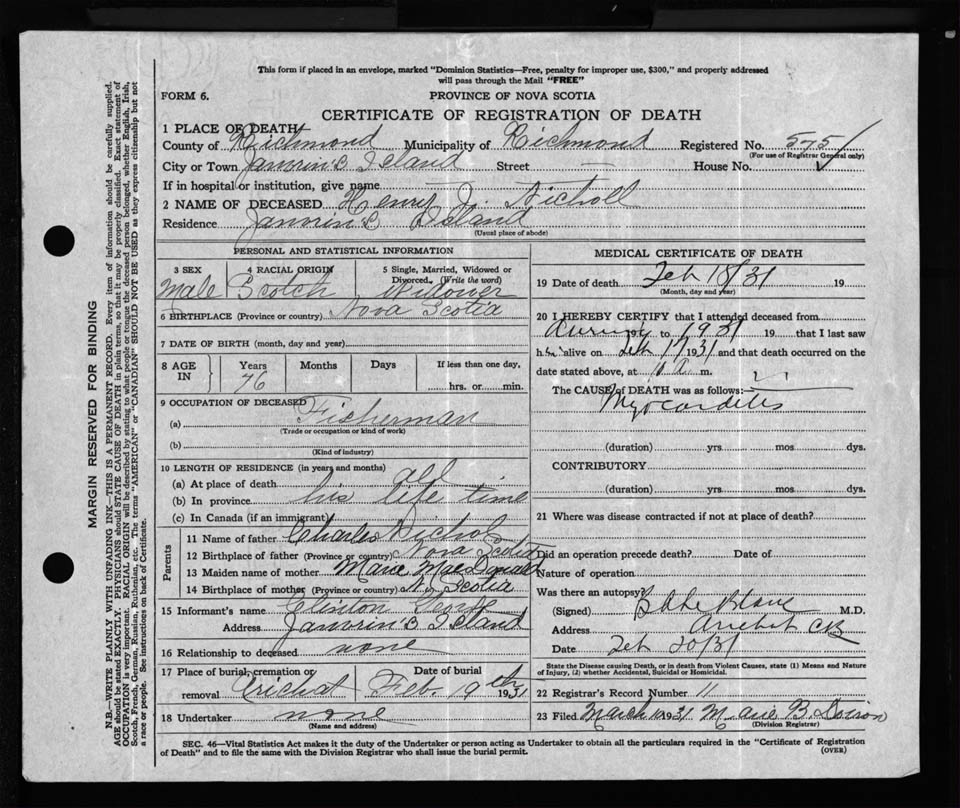 This form if placed in an envelope, marked "Dominion Statistics—Free, penalty for improper use, $300," and properly addressed
will pass through the Mail "FREE"
FORM 6. PROVINCE OF NOVA SCOTIA
CERTIFICATE OF REGISTRATION OF DEATH
1 PLACE OF DEATH
County of Richmond Municipality of Richmond Registered No. 575
(For use of Registrar General only)
City or Town Janvrin's Island Street — House No.
If in hospital or institution, give name
2 NAME OF DECEASED Henry J. Nicholl
Residence Janvrin's Island
(Usual place of abode)
PERSONAL AND STATISTICAL INFORMATION
3 SEX 4 RACIAL ORIGIN 5 Single, Married, Widowed or
Divorced. (Write the word)
Male Scotch Widower
6 BIRTHPLACE (Province or country) Nova Scotia
7 DATE OF BIRTH (month, day and year)
8 AGE IN Years Months Days If less than one day,
76 hrs. or min.
9 OCCUPATION OF DECEASED
(a) Fisherman
(Trade or occupation or kind of work)
(b)
(Kind of industry)
10 LENGTH OF RESIDENCE (in years and months)
(a) At place of death all
(b) In province his life time
(c) In Canada (if an immigrant)
Parents
11 Name of father Charles Nichol
12 Birthplace of father (Province or country) Nova Scotia
13 Maiden name of mother Marie MacDonald
14 Birthplace of mother (Province or country) N. Scotia
15 Informant's name Clinton
Address Janvrin's Island
16 Relationship to deceased none
17 Place of burial, cremation or Date of burial
removal Arichat Feb. 19th 1931
18 Undertaker none
(Name and address)
MEDICAL CERTIFICATE OF DEATH
19 Date of death Feb 18/31 19
(Month, day and year)
20 I HEREBY CERTIFY that I attended deceased from
19 to 1931 19 that I last saw
h alive on Feb 17 1931 and that death occurred on the
date stated above, at 10 a m.
The CAUSE of DEATH was as follows:
Myocarditis
(duration) yrs mos dys.
CONTRIBUTORY
(duration) yrs. mos. dys.
21 Where was disease contracted if not at place of death?
Did an operation precede death? Date of
Nature of operation
Was there an autopsy?
(Signed) M.D.
Address Arichat CB
Date Feb 20/31
State the Disease causing Death, or in death from Violent Causes, state (1) Means and Nature
of Injury, (2) whether Accidental, Suicidal or Homicidal.
22 Registrar's Record Number 11
23 Filed March 1931 Marie B.
(Division Registrar)
SEC. 46—Vital Statistics Act makes it the duty of the Undertaker or person acting as Undertaker to obtain all the particulars required in the "Certificate of Registration
of Death" and to file the same with the Division Registrar who shall issue the burial permit. (OVER)
MARGIN RESERVED FOR BINDING
N.B.—WRITE PLAINLY WITH UNFADING INK—THIS IS A PERMANENT RECORD. Every item of information should be carefully supplied.
AGE should be stated EXACTLY. PHYSICIANS should STATE CAUSE OF DEATH in plain terms, so that it may be properly classified. Exact statement of
OCCUPATION is very important. RACIAL ORIGIN will be described by stating to what people or tongue the deceased person belonged, whether English, Irish,
Scotch, French, German, Russian, Ruthenian, etc. The terms "AMERICAN" or "CANADIAN" SHOULD NOT BE USED as they express citizenship but not
a race or people. See instructions on back of Certificate.